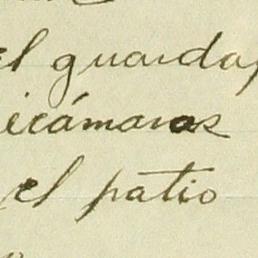 el guarda
icámaras
el patio